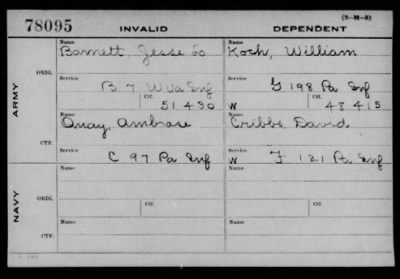 (3-H-3)
78095 INVALID DEPENDENT
Name Name
Barnett, Jesse Koch, William
ORIG.
Service Service
B 7 W Va Inf G 198 Pa Inf
Ctf. Ctf.
51 430 W 48 415
ARMY
Name Name
Quay, Ambrose Cribbs David
CTF.
Service Service
C 97 Pa Inf W F 121 Pa Inf
Name Name
ORIG.
Ctf. Ctf.
NAVY
Name Name
CTF.